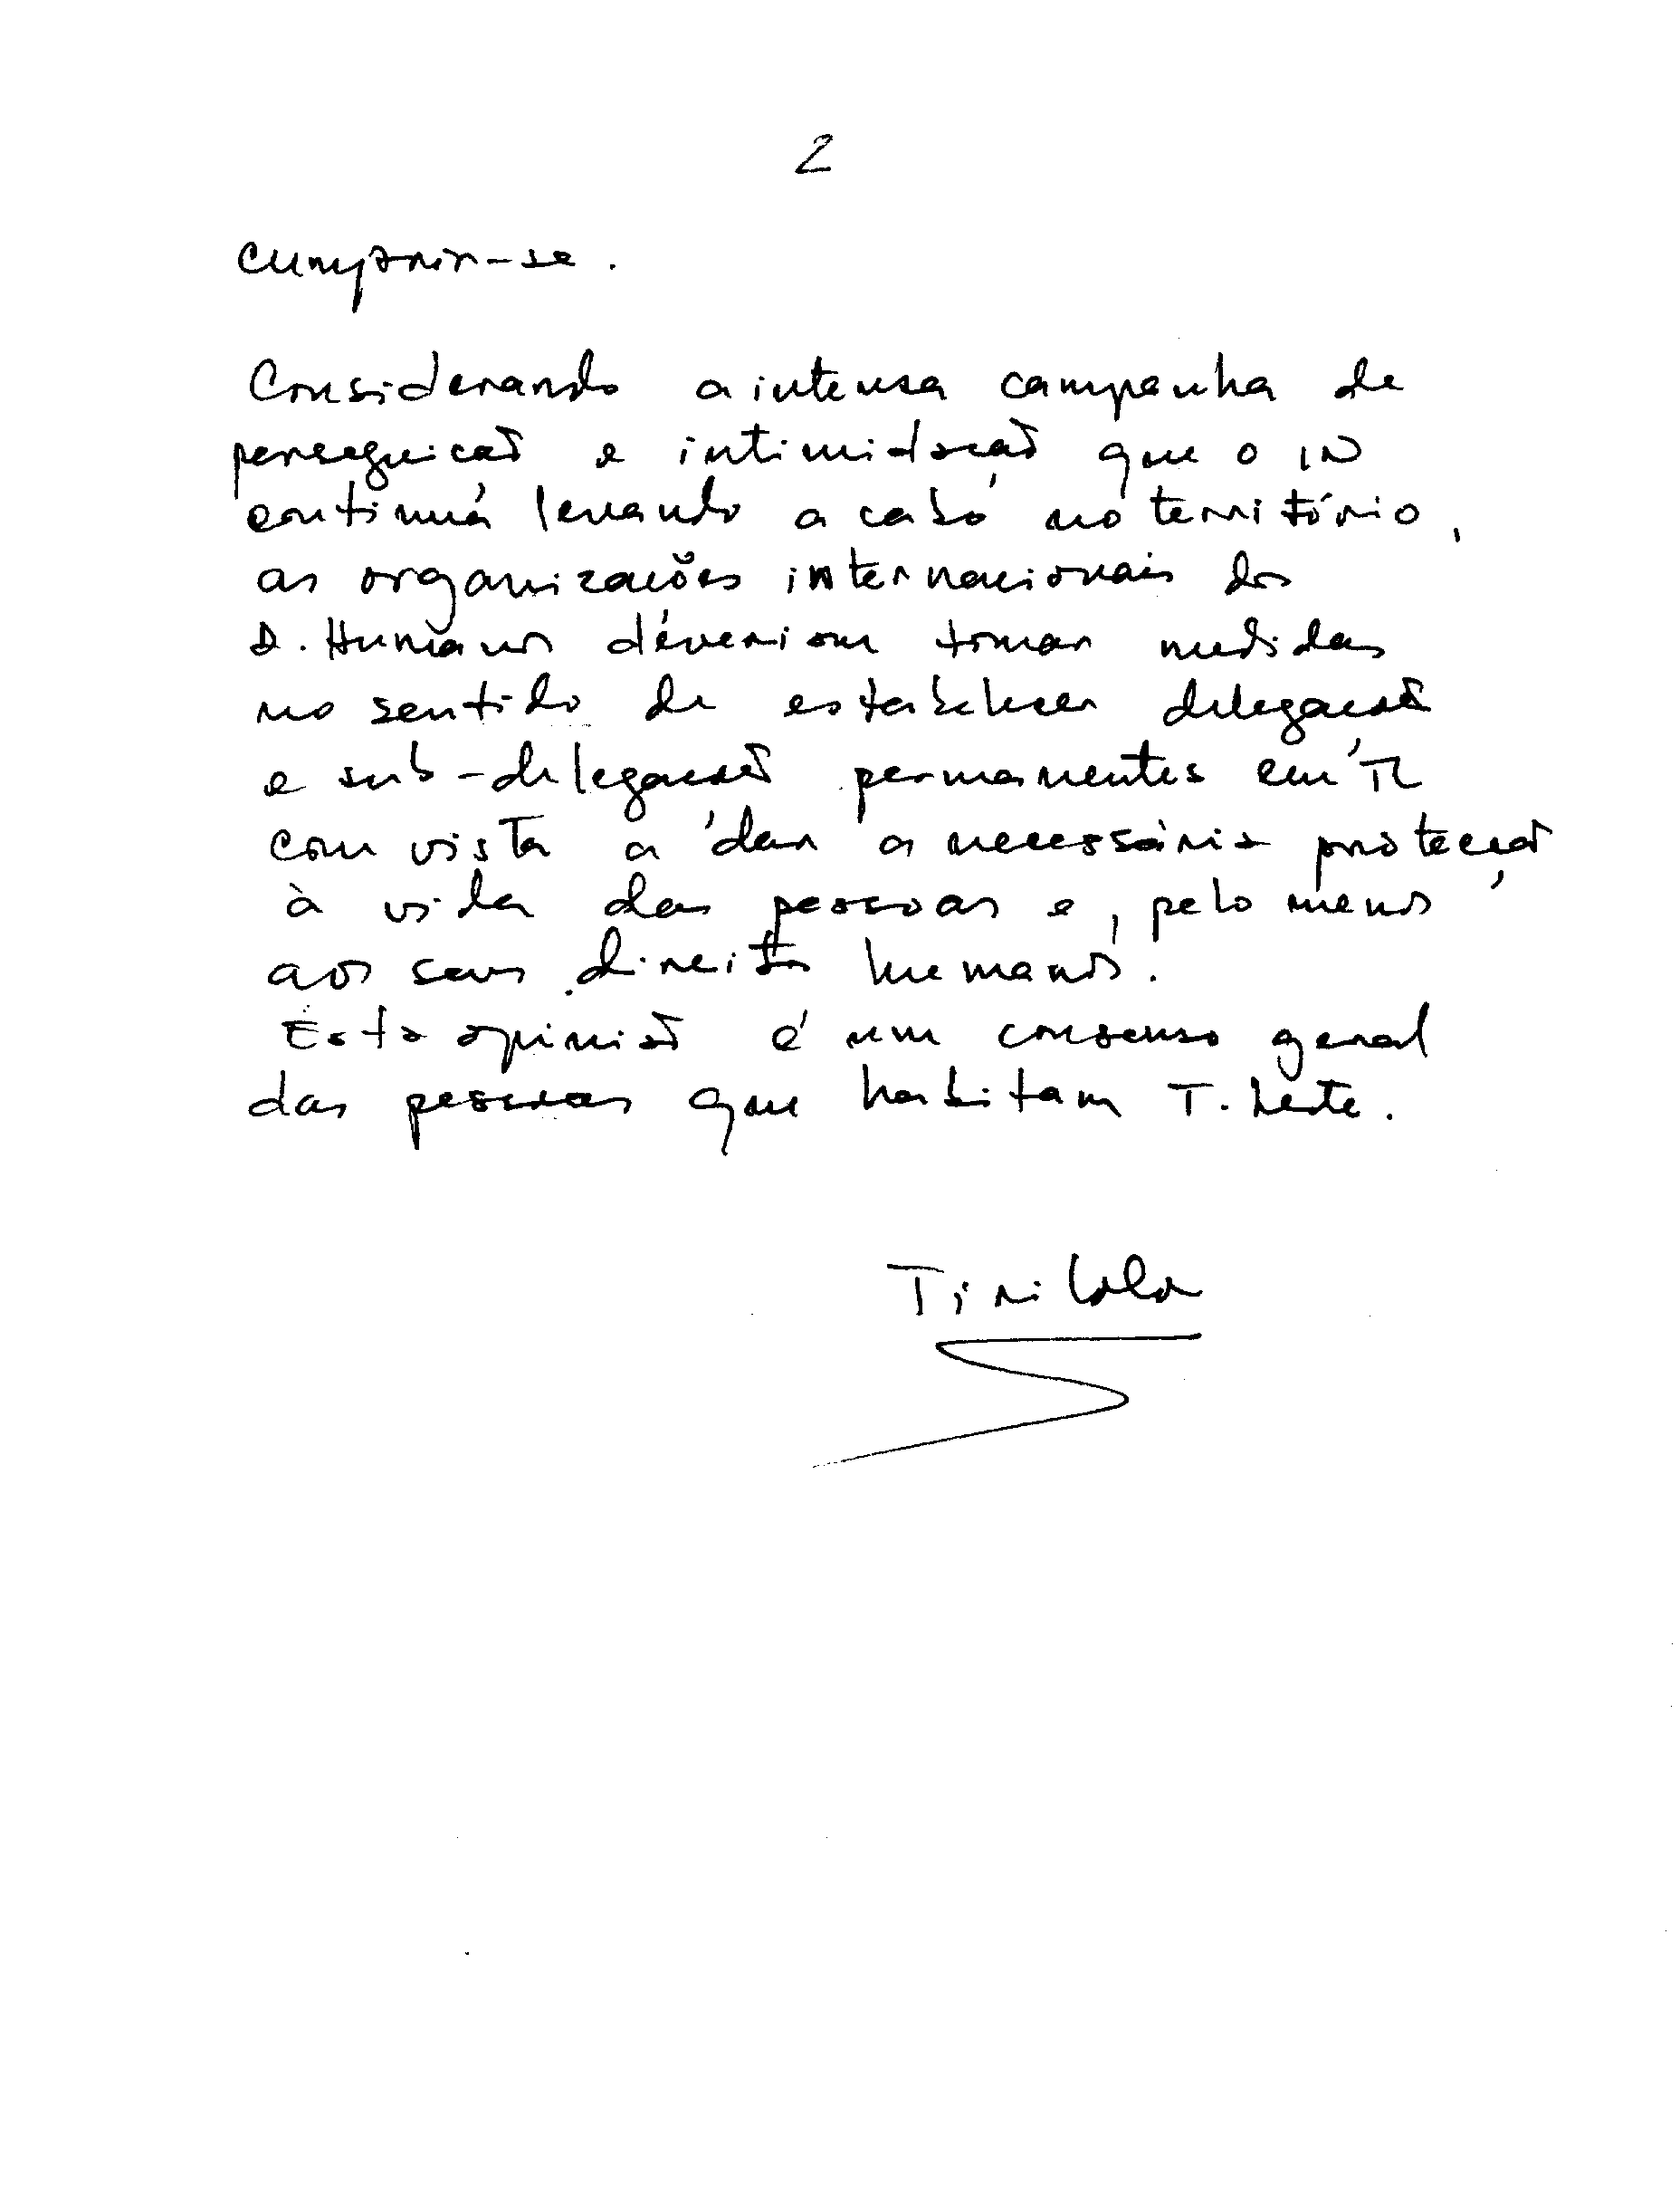 2
cumprir-se.
Considerando a intensa campanha de
perseguição e intimidação que o IN
continuá levando a cabo no território,
as organizações internacionais dos
D. Humanos deveriam tomar medidas
no sentido de estabelecer delegação
e sub-delegação permanentes em TL
com vista a dar a necessária proteção
à vida das pessoas e, pelo menos
aos seus direitos humanos.
Esta opinião é um consenso geral
das pessoas que habitam T. Leste.